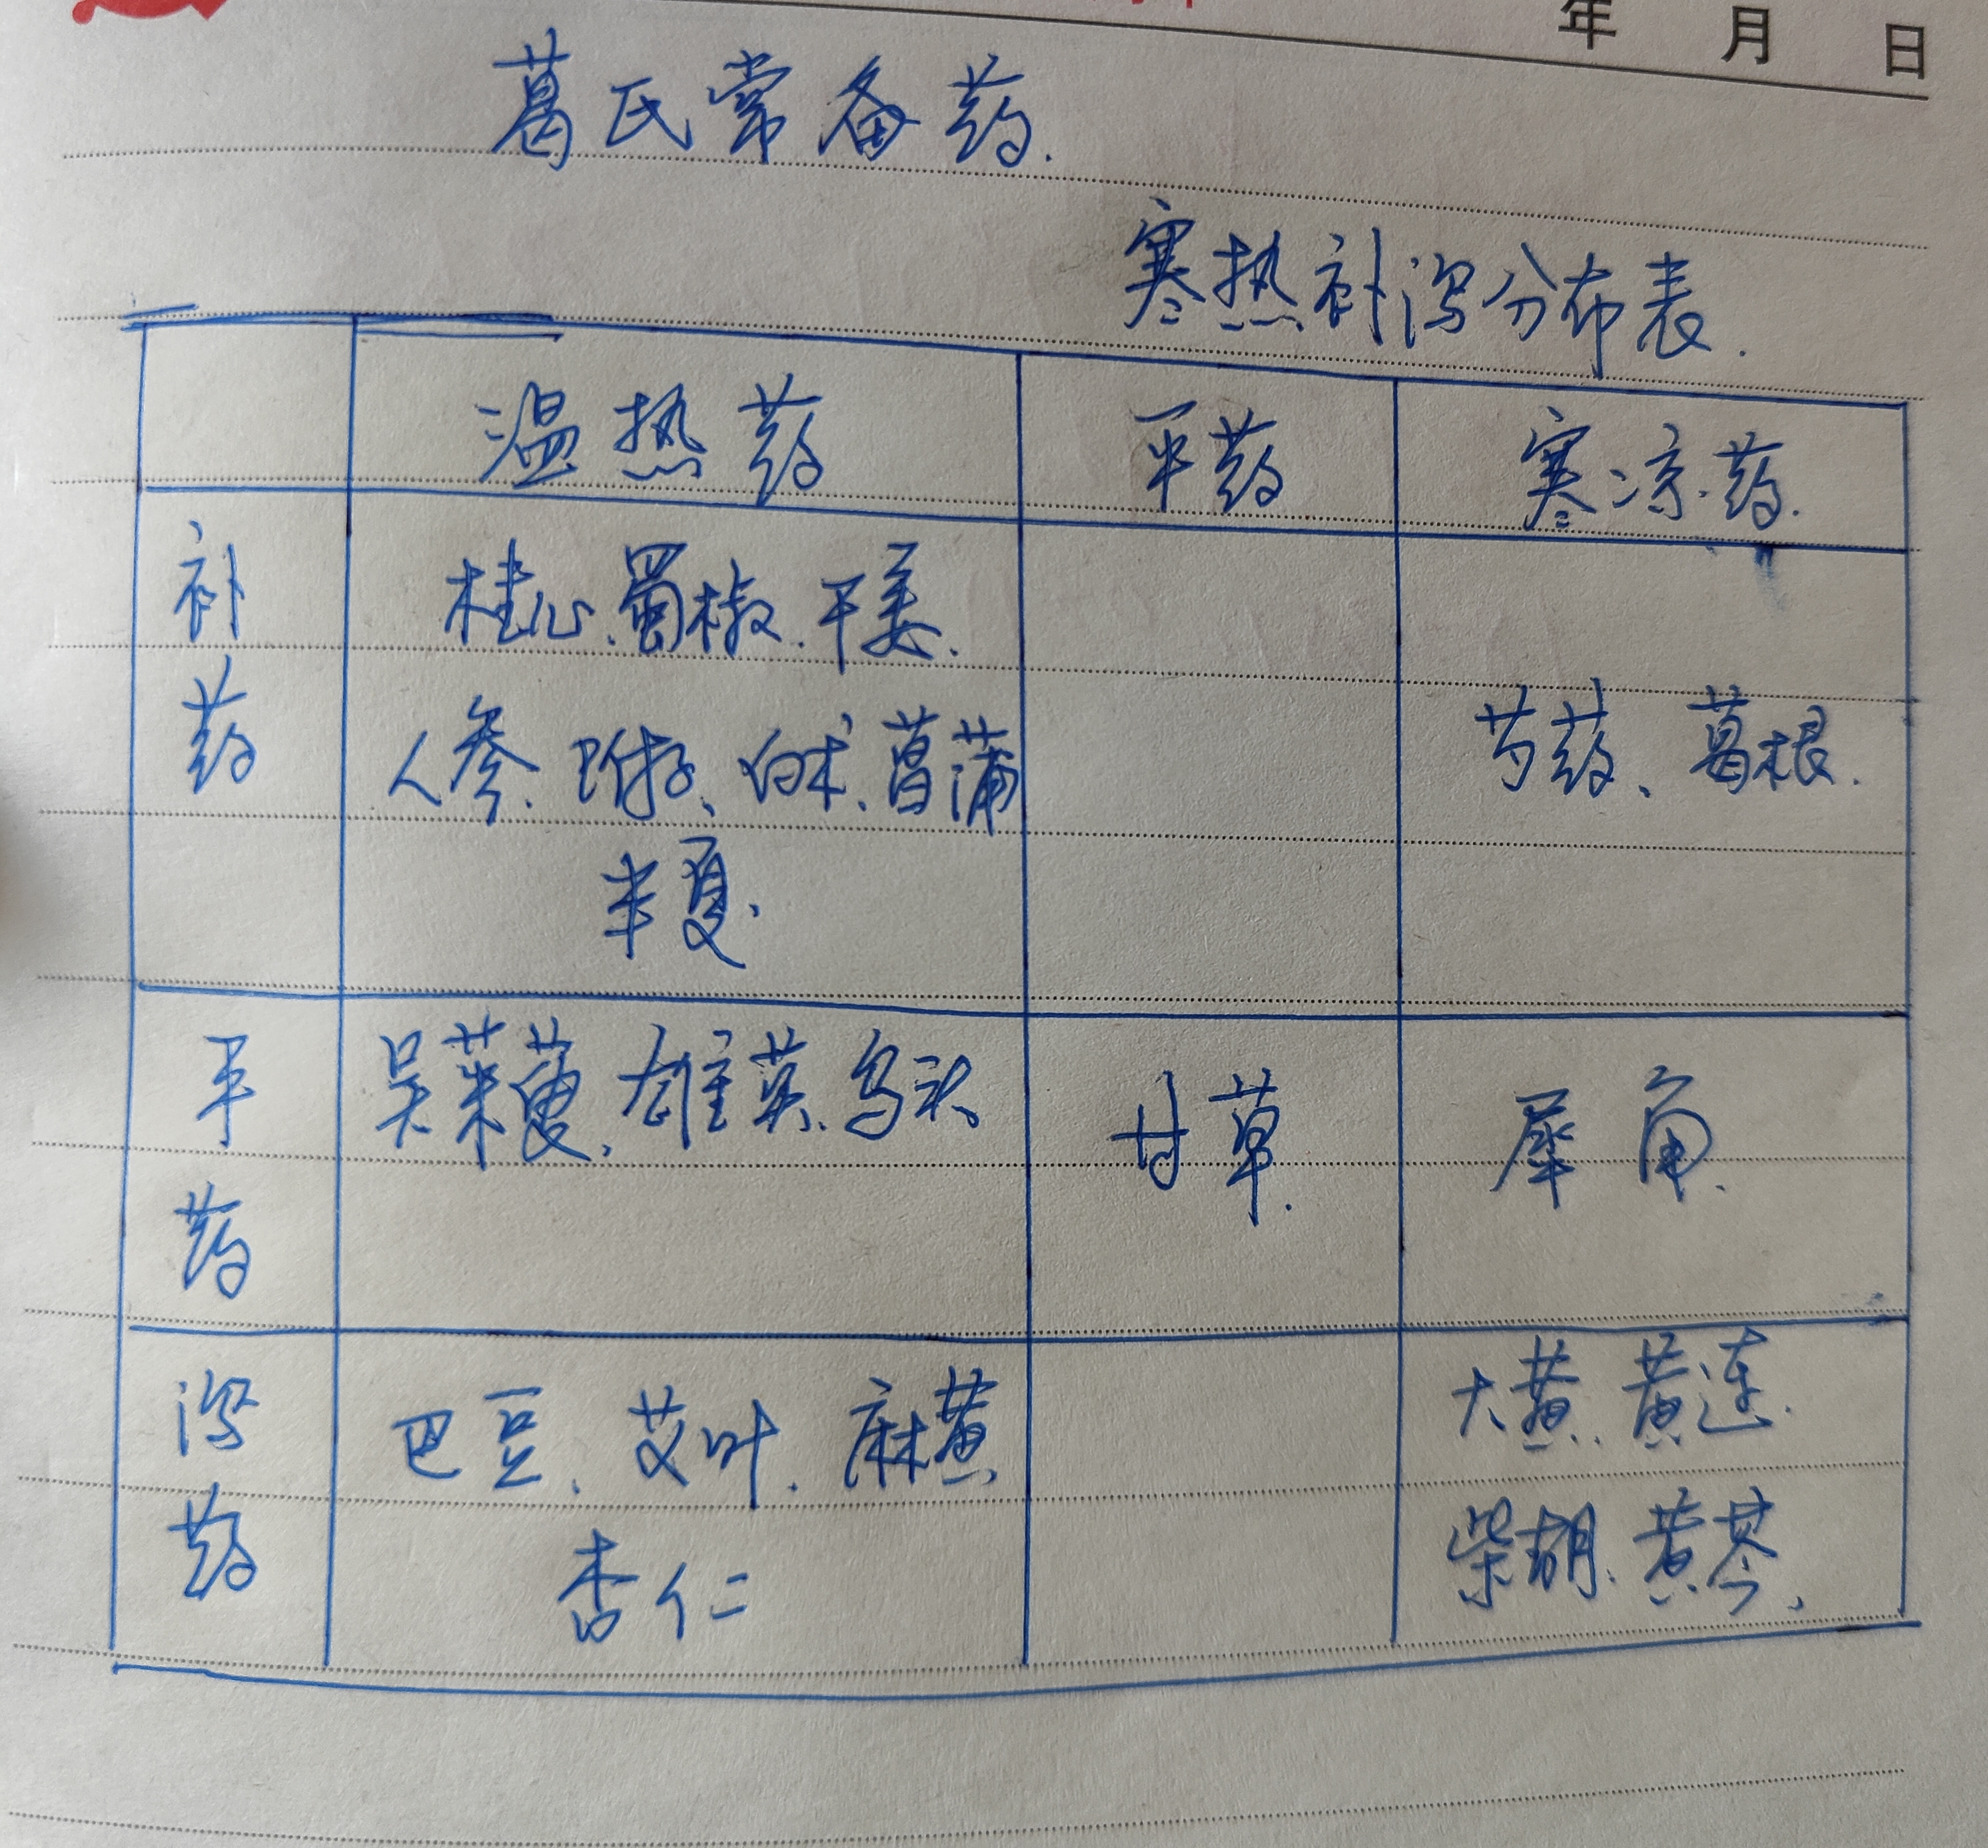 年 月 日
葛氏常备药.
寒热补泻分布表.
温热药 平药 寒凉药.
补药
桂心.蜀椒.干姜.
人参.附子、白术、菖蒲
半夏.
芍药、葛根.
平药
吴茱萸.雄黄.乌头
甘草.
犀角.
泻药
巴豆.艾叶.麻黄.
杏仁
大黄.黄连.
柴胡.黄芩.